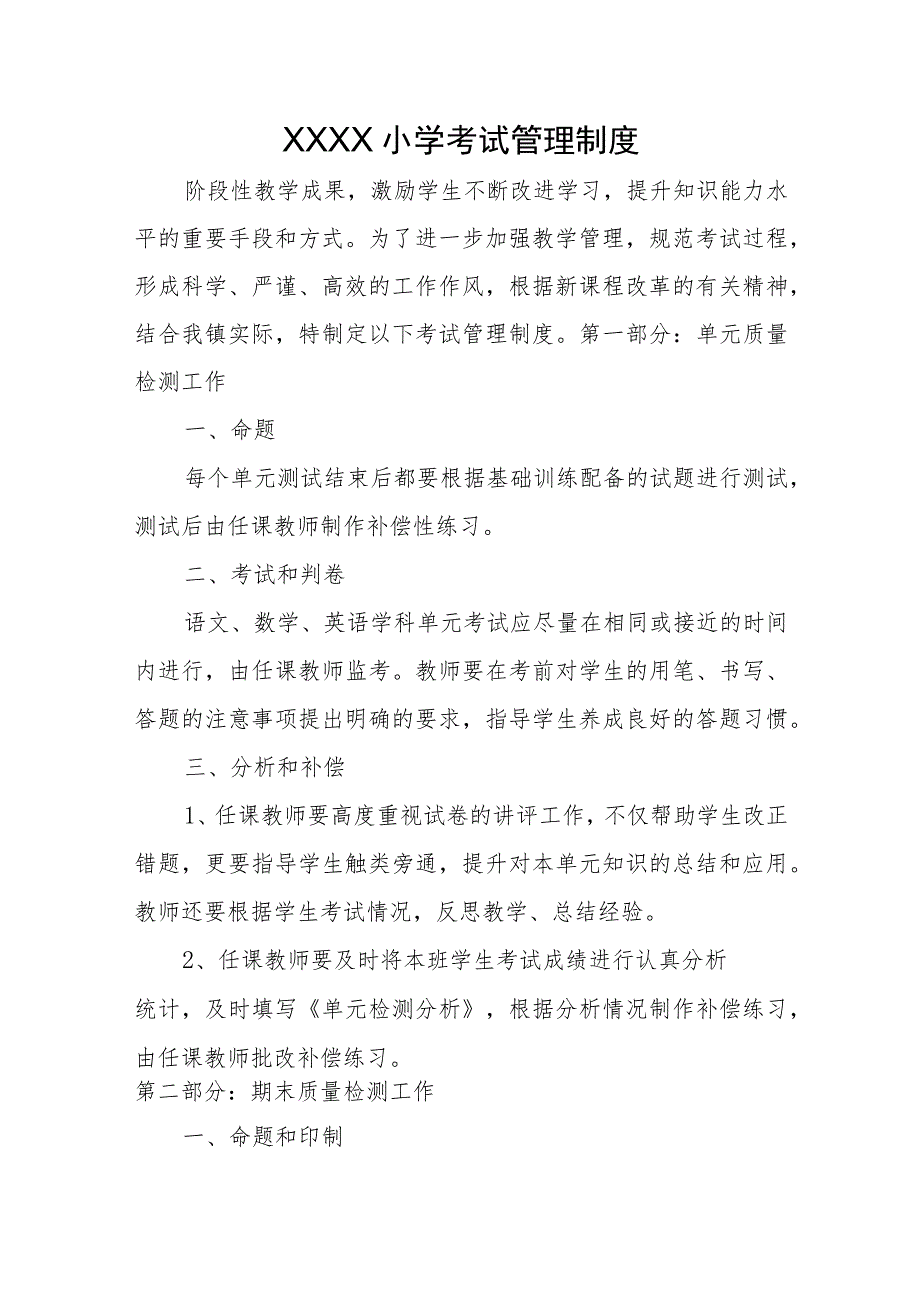 XXXX 小学考试管理制度
阶段性教学成果，激励学生不断改进学习，提升知识能力水
平的重要手段和方式。为了进一步加强教学管理，规范考试过程，
形成科学、严谨、高效的工作作风，根据新课程改革的有关精神，
结合我镇实际，特制定以下考试管理制度。第一部分：单元质量
检测工作
一、命题
每个单元测试结束后都要根据基础训练配备的试题进行测试，
测试后由任课教师制作补偿性练习。
二、考试和判卷
语文、数学、英语学科单元考试应尽量在相同或接近的时间
内进行，由任课教师监考。教师要在考前对学生的用笔、书写、
答题的注意事项提出明确的要求，指导学生养成良好的答题习惯。
三、分析和补偿
1、任课教师要高度重视试卷的讲评工作，不仅帮助学生改正
错题，更要指导学生触类旁通，提升对本单元知识的总结和应用。
教师还要根据学生考试情况，反思教学、总结经验。
2、任课教师要及时将本班学生考试成绩进行认真分析
统计，及时填写《单元检测分析》，根据分析情况制作补偿练习，
由任课教师批改补偿练习。
第二部分：期末质量检测工作
一、命题和印制